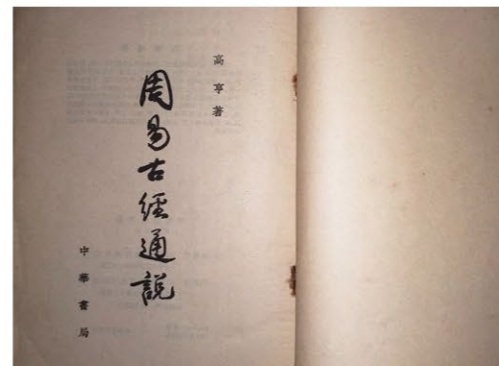 高亨著
周易古經通說
中華書局